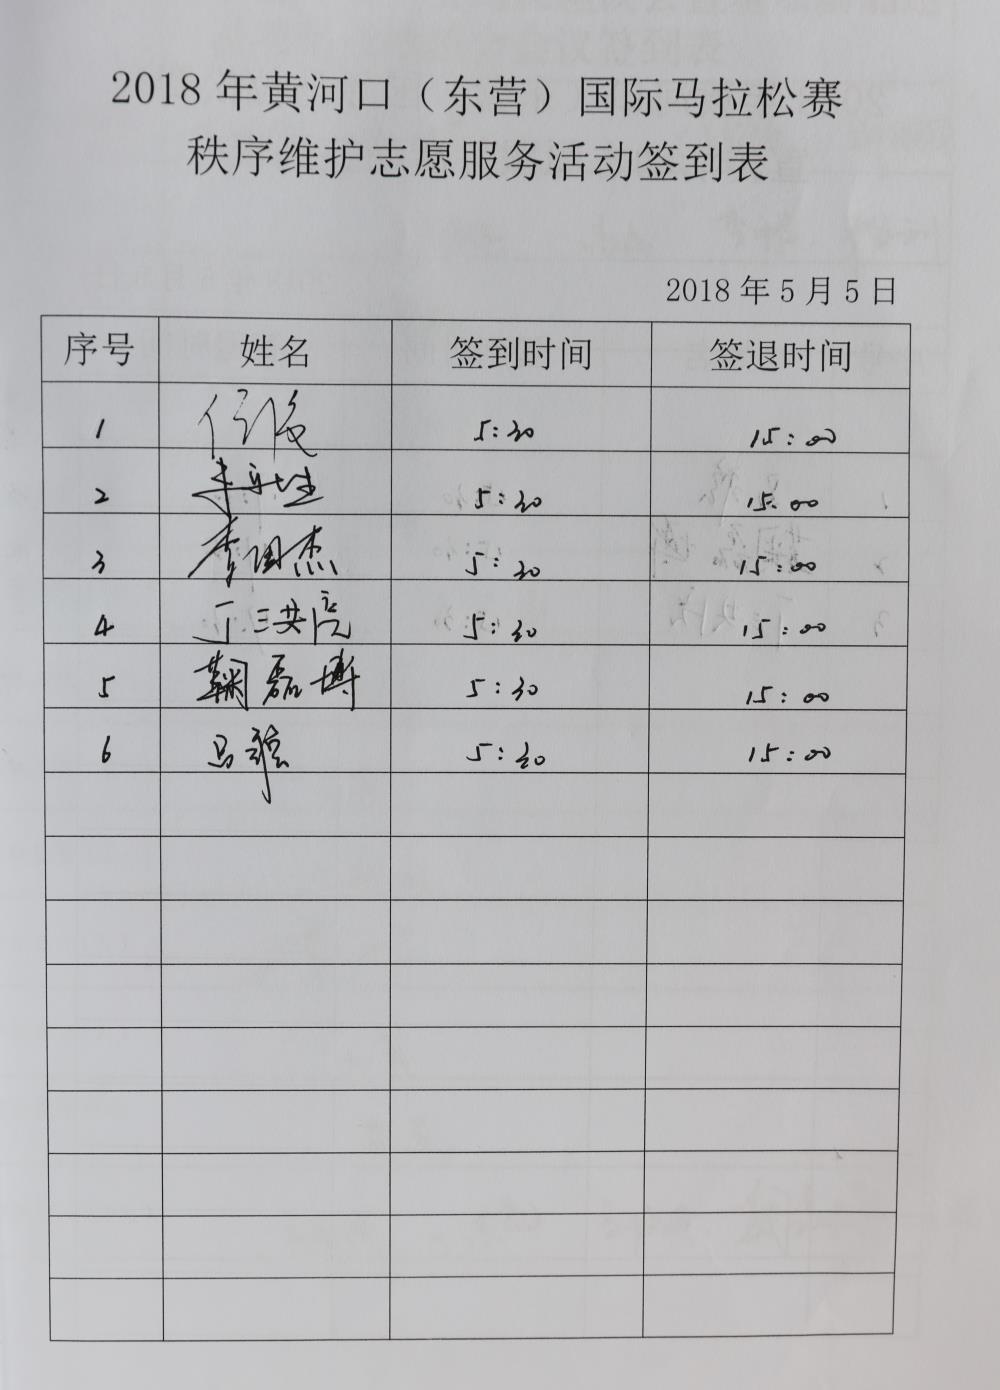 2018 年黄河口（东营）国际马拉松赛
秩序维护志愿服务活动签到表
2018 年 5 月 5 日
序号 姓名 签到时间 签退时间
1 5:30 15:00
2 5:30 15.00
3 李国杰 5:30 15:00
4 5:30 15:00
5 鞠磊博 5:30 15:00
6 马 5:30 15:00